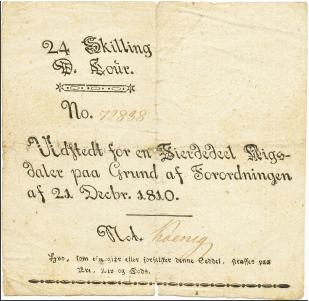 24 Skilling
D. Coür.
No. 72838
Udstedt for en Fierdedeel Rigs-
daler paa Grund af Forordningen
af 21 Decbr. 1810.
Not. Koenig
Hvo, som eftergiør eller forfalsker denne Seddel, straffes paa
Ære, Liv og Gods.